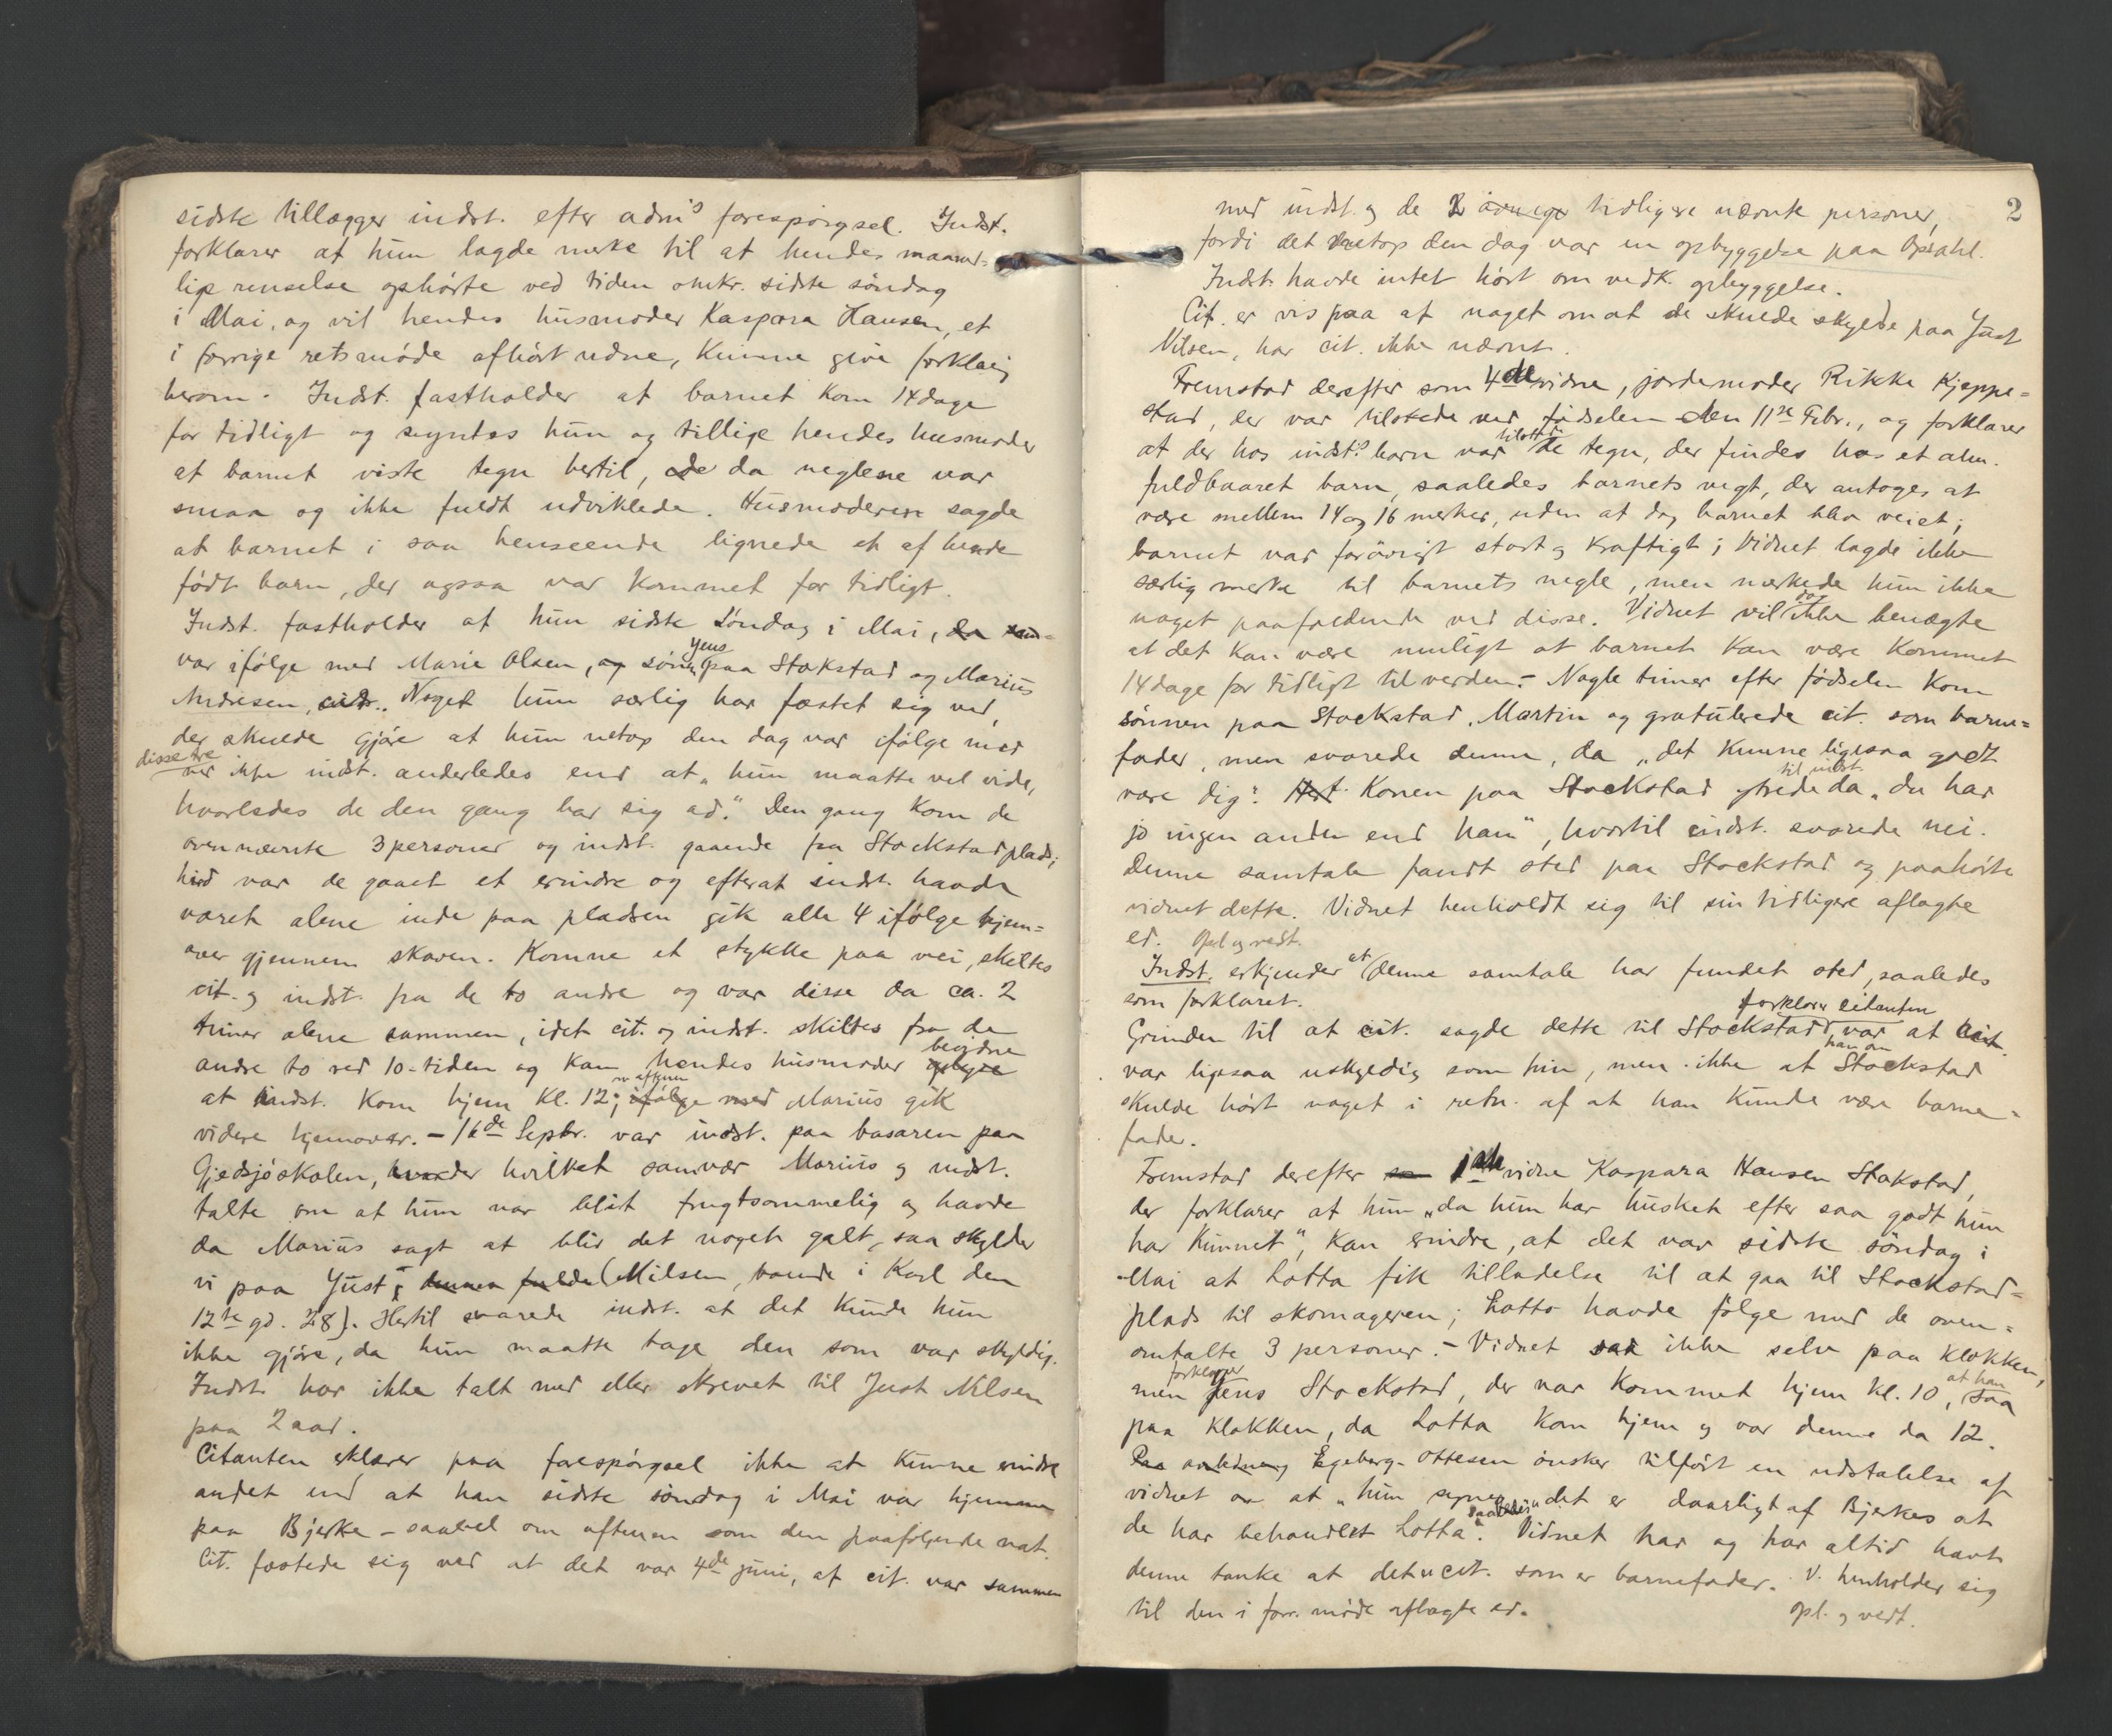 sidste tillægger indst. efter adm's forespørgsel. Indst.
forklarer at hun lagde merke til at hendes maaned=
lige renselse ophørte ved tiden omkr. sidste søndag
i Mai, og vil hendes husmoder Kaspara Hansen, et
i forrige retsmøde afhørt vidne, kunne give forklaring
herom. Indst. fastholder at barnet kom 14 dage
for tidligt og syntes hun og tillige hendes husmoder
at barnet viste tegn hertil, da neglene var
smaa og ikke fuldt udviklede. Husmoderen sagde
at barnet i saa henseende lignede et af hende
født barn, der ogsaa var kommet for tidligt.
Indst. fastholder at hun sidste søndag i Mai,
var ifølge med Marie Olsen, sønnen Jens paa Stakstad og Marius
Andresen, Noget hun særlig har fæstet sig ved,
der skulde gjøre at hun netop den dag var ifølge med
disse tre ved ikke indst. anderledes end at „hun maatte vel vide,
hvorledes de den gang bar sig ad." Den gang kom de
ovennævnte 3 personer og indst. gaaende fra Stockstadplads;
hid var de gaaet et erinde og efterat indst. havde
været alene inde paa pladsen gik alle 4 ifølge hjem=
over gjennem skoven. Komne et stykke paa vei, skiltes
cit. og indst. fra de to andre og var disse da ca. 2
timer alene sammen, idet cit. og indst. skiltes fra de
andre to ved 10-tiden og kan hendes husmoder bevidne
at indst. kom hjem kl. 12; Marius gik
videre hjemover. – 16de Septbr. var indst. paa basaren paa
Gjedsjøskolen, under hvilket samvær Marius og indst.
talte om at hun var blit frugtsommelig og havde
da Marius sagt at blir det noget galt, saa skylder
vi paa Just (Nilsen, boende i Karl den
12te gd. 28). Hertil svarede indst. at det kunde hun
ikke gjøre, da hun maatte tage den som var skyldig.
Indst. har ikke talt med eller skrevet til Just Nilsen
paa 2 aar.
Citanten erklærer paa forespørgsel ikke at kunne erindre
andet end at han sidste søndag i Mai var hjemme
paa Bjerke – saavel om aftenen som den paafølgende nat.
Cit. fæstede sig ved at det var 4de juni, at cit. var sammen
2
med indst. og de 2 tidligere nævnte personer,
fordi det netop den dag var en opbyggelse paa Opsahl.
Indst. havde intet hørt om vedk. opbyggelse.
Cit. er vis paa at noget om at de skulde skylde paa Just
Nilsen, har cit. ikke nævnt.
Fremstod derefter som 4de vidne, jordemoder Rikka Kjeppe=
stad, der var tilstede ved fødselen den 11te Febr., og forklarer
at der hos indst's barn var tilstede de tegn, der findes hos et alm.
fuldbaaret barn, saaledes barnets vegt, der antoges at
være mellem 14 og 16 merker, uden at dog barnet blev veiet;
barnet var forøvrigt stort og kraftigt; Vidnet lagde ikke
særlig merke til barnets negle, men merkede hun ikke
noget paafaldende ved disse. Vidnet vil dog ikke benægte
at det kan være muligt at barnet kan være kommet
14 dage for tidligt til verden. – Nogle timer efter fødselen kom
sønnen paa Stockstad, Martin og gratulerede cit. som barne=
fader, men svarede denne, da „det kunne ligesaa godt
være dig". Konen paa Stockstad ytrede da til indst. „du har
jo ingen anden end han", hvortil indst. svarede nei.
Denne samtale fandt sted paa Stockstad og paahørte
vidnet dette. Vidnet henholdt sig til sin tidligere aflagte
ed. Opl. og vedt.
Indst. erkjender at denne samtale har fundet sted, saaledes
som forklaret.
Grunden til at cit. sagde dette til Stockstad, forklarer citanten var at han
var ligesaa uskyldig som hin, men ikke at Stockstad
skulde hørt noget i retn. af at han kunde være barne=
fader.
Fremstod derefter 1ste vidne Kaspara Hansen Stakstad,
der forklarer at hun „da hun har husket efter saa godt hun
har kunnet", kan erindre, at det var sidste søndag i
Mai at Lotta fik tilladelse til at gaa til Stockstad=
plads til skomageren; Lotta havde følge med de oven=
omtalte 3 personer. – Vidnet saa ikke selv paa klokken,
men forklarer Jens Stockstad, der var kommet hjem kl. 10, at han saa
paa klokken, da Lotta kom hjem og var denne da 12.
Egeberg-Ottesen ønsker tilført en udtalelse af
vidnet om at „hun synes det er daarligt af Bjerkes at
de har behandlet Lotta saaledes". Vidnet har og har altid havt
denne tanke at det er cit. som er barnefader. V. henholder sig
til den i forr. møde aflagte ed.
opl. og vedt.